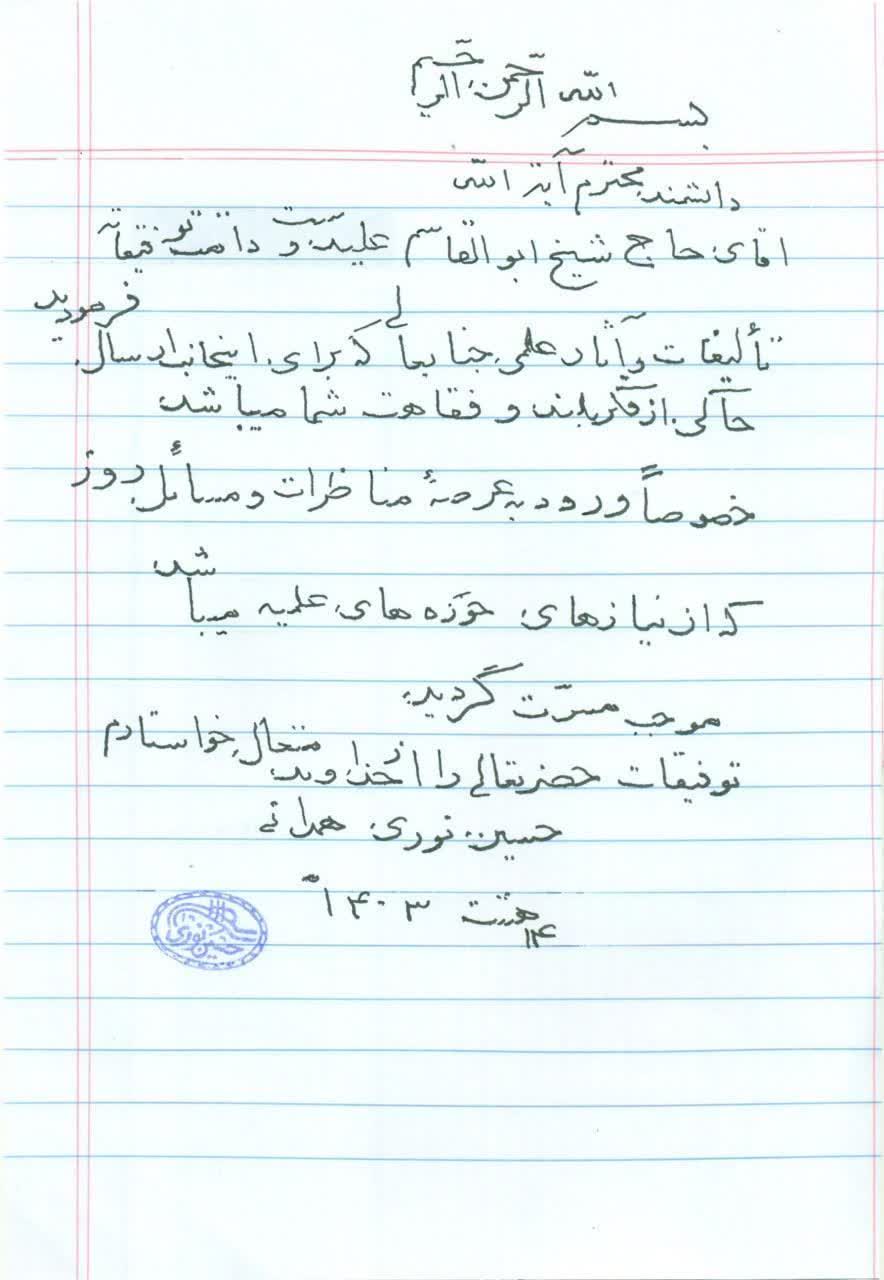 بسم الله الرحمن الرحیم
دانشمند محترم آیة الله
آقای حاج شیخ ابوالقاسم علیدوست دامت توفیقاته
تألیفات و آثار علمی جنابعالی که برای اینجانب ارسال فرمودید
حاکی از فکر بلند و فقاهت شما میباشد
خصوصاً ورود به عرصهٔ مناظرات و مسائل روز
که از نیازهای حوزه های علمیه میباشد
موجب مسرّت گردید
توفیقات حضرتعالی را از خداوند متعال خواستارم
حسین نوری همدانی
۱۴ ۱۴۰۳
حسین نوری